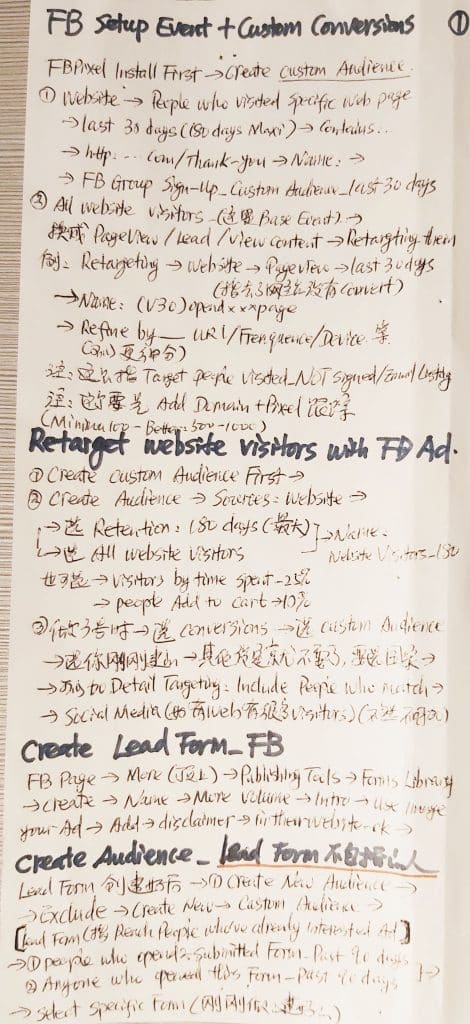 FB Setup Event + Custom Conversions ①
FB Pixel Install First → Create custom Audience.
① Website → People who visited specific web page
→ last 30 days (180 days Maxi) → Contains..
→ http: ... com/Thank-you → Name: →
→ FB Group Sign-Up_Custom Audience_last 30 days
② All website visitors - (这里 Base Event) →
换成 PageView / Lead / View content → Retargting them
例: Retargeting → website → Pageview → last 30 days
(指去了网站没有 Convert)
→ Name: (V30) opend xxx page
→ Refine by __ URL/Frenquence/Device 等
注: Target people visited_NOT Signed/Email Listing
注: Add Domain + Pixel
(Minimum 100 - Better: 500-1000)
Retarget website visitors with FB Ad.
① Create custom Audience First →
② Create Audience → Sources: Website →
→ 选 Retention: 180 days (最大)
→ 选 All website visitors → Name: Website Visitors_180
也可选 → visitors by time spent - 25%
→ people Add to Cart → 10%
③ 做广告时 → 选 conversions → 选 custom Audience
→ 选你刚刚建 → 其他 不要了, 要选国家 →
→ Detail Targeting: Include People who match →
→ Social Media (如 web 有很多 visitors)
Create Lead Form_FB
FB Page → More (顶上) → Publishing Tools → Forms Library
→ create → Name → More Volume → Intro → use Image
your Ad → Add → disclaimer → further website → ok →
Create Audience_Lead Form 不包括
Lead Form 创建好后 → ① Create New Audience →
→ Exclude → Create New → Custom Audience →
[Lead Form (指 Reach People who've already Interested Ad)]
→ ① people who opend & submitted Form - Past 90 days
② Anyone who opened this Form - Past 90 days →
→ select specific Form (刚刚